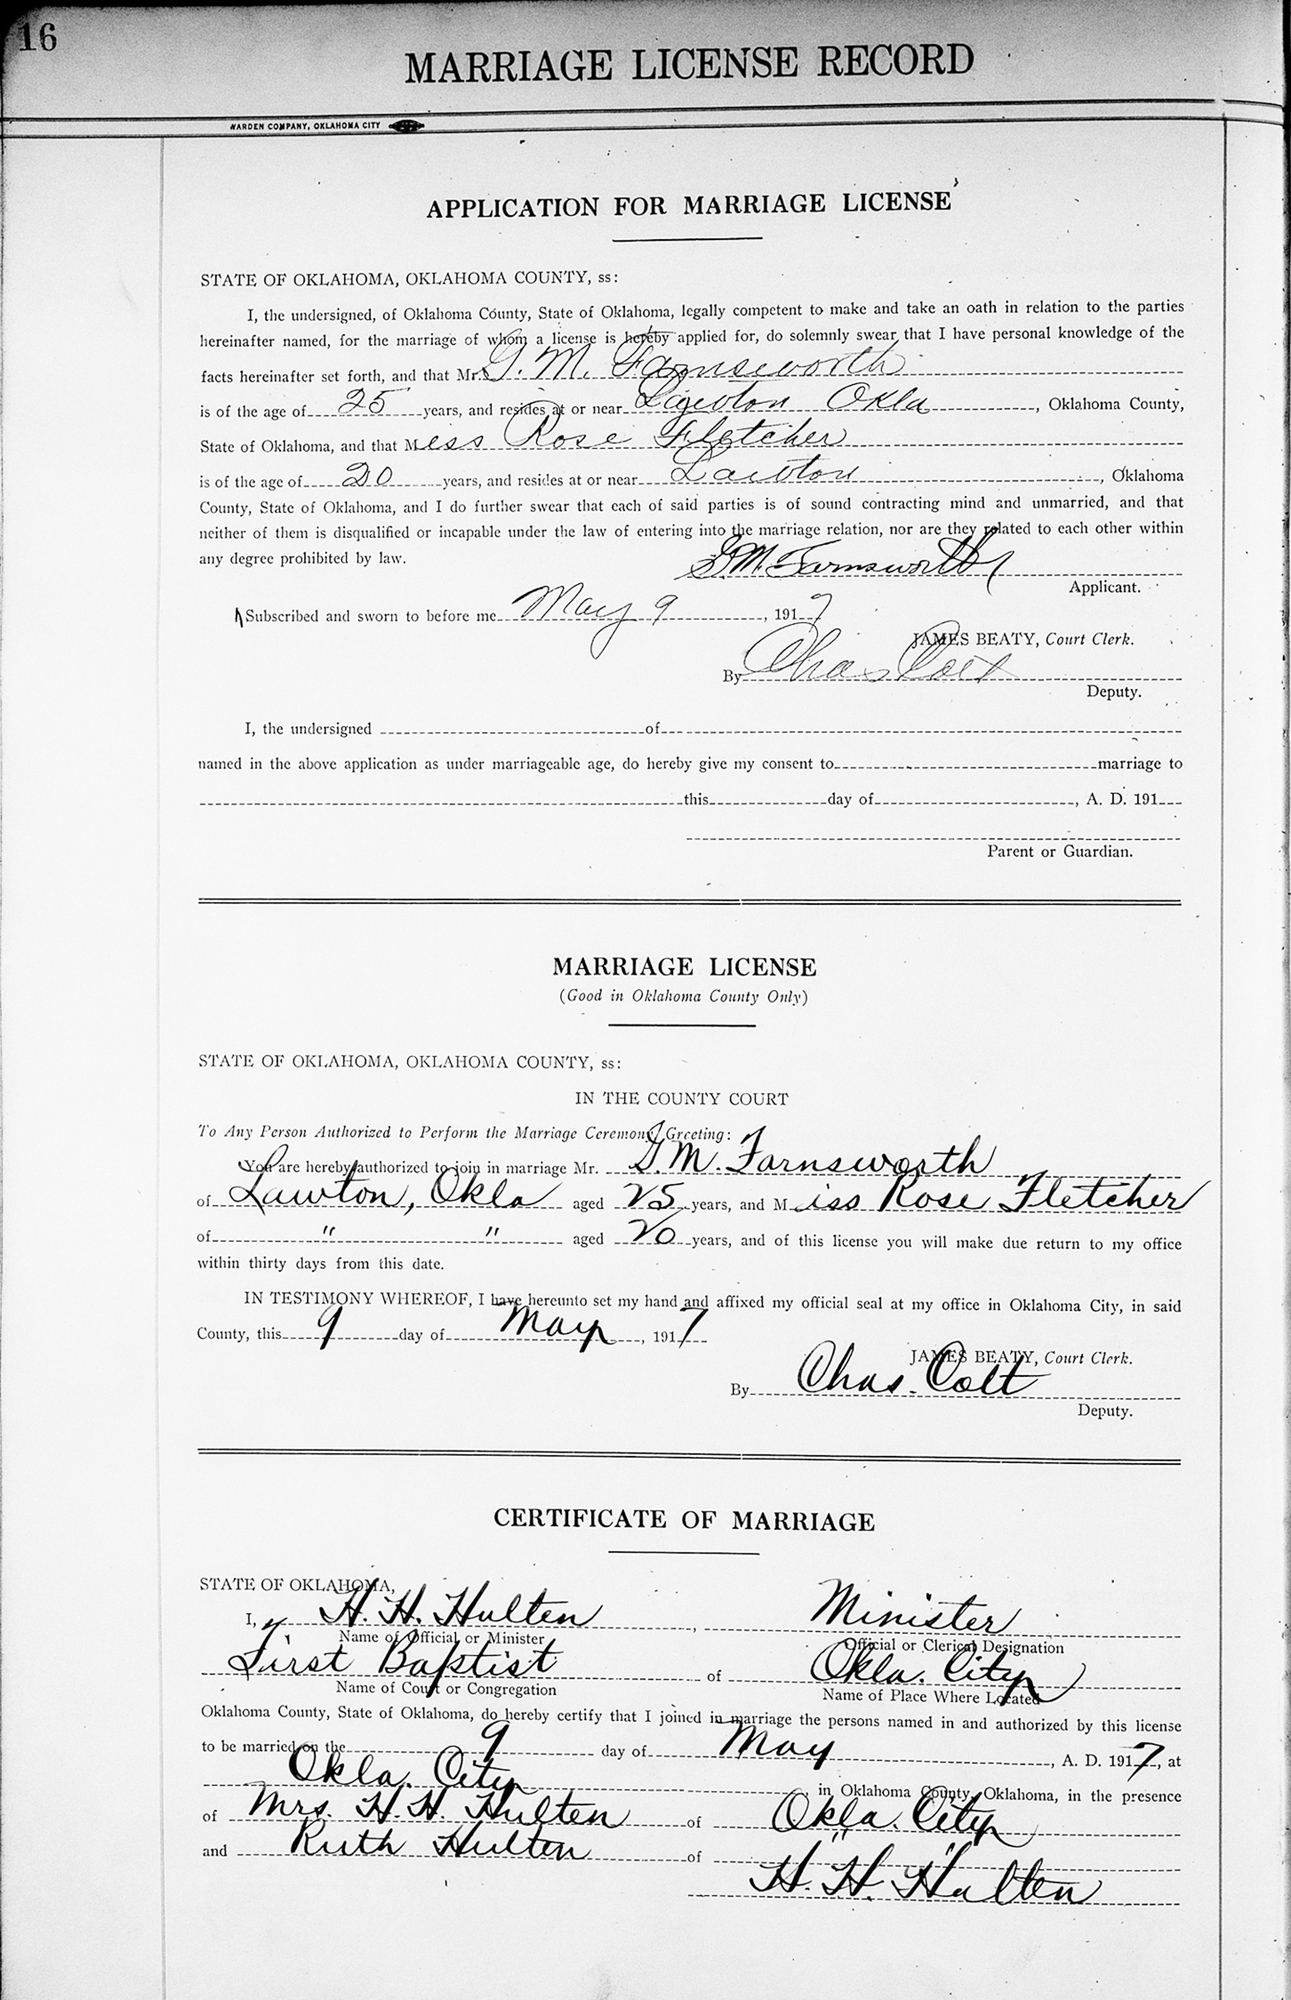 16
MARRIAGE LICENSE RECORD
WARDEN COMPANY, OKLAHOMA CITY
APPLICATION FOR MARRIAGE LICENSE
STATE OF OKLAHOMA, OKLAHOMA COUNTY, ss:
I, the undersigned, of Oklahoma County, State of Oklahoma, legally competent to make and take an oath in relation to the parties
hereinafter named, for the marriage of whom a license is hereby applied for, do solemnly swear that I have personal knowledge of the
facts hereinafter set forth, and that Mr. G. M. Farnsworth
is of the age of 25 years, and resides at or near Lawton Okla, Oklahoma County,
State of Oklahoma, and that Miss Rose Fletcher
is of the age of 20 years, and resides at or near Lawton, Oklahoma
County, State of Oklahoma, and I do further swear that each of said parties is of sound contracting mind and unmarried, and that
neither of them is disqualified or incapable under the law of entering into the marriage relation, nor are they related to each other within
any degree prohibited by law.
G. M. Farnsworth
Applicant.
Subscribed and sworn to before me May 9, 1917
JAMES BEATY, Court Clerk.
By Chas Colt
Deputy.
I, the undersigned of
named in the above application as under marriageable age, do hereby give my consent to marriage to
this day of , A. D. 191
Parent or Guardian.
MARRIAGE LICENSE
(Good in Oklahoma County Only)
STATE OF OKLAHOMA, OKLAHOMA COUNTY, ss:
IN THE COUNTY COURT
To Any Person Authorized to Perform the Marriage Ceremony, Greeting:
You are hereby authorized to join in marriage Mr. G. M. Farnsworth
of Lawton, Okla aged 25 years, and Miss Rose Fletcher
of " " aged 20 years, and of this license you will make due return to my office
within thirty days from this date.
IN TESTIMONY WHEREOF, I have hereunto set my hand and affixed my official seal at my office in Oklahoma City, in said
County, this 9 day of May, 1917
JAMES BEATY, Court Clerk.
By Chas. Colt
Deputy.
CERTIFICATE OF MARRIAGE
STATE OF OKLAHOMA,
I, H. H. Hulten, Minister
Name of Official or Minister Official or Clerical Designation
First Baptist of Okla. City
Name of Court or Congregation Name of Place Where Located
Oklahoma County, State of Oklahoma, do hereby certify that I joined in marriage the persons named in and authorized by this license
to be married on the 9 day of May, A. D. 1917, at
Okla. City in Oklahoma County, Oklahoma, in the presence
of Mrs. H. H. Hulten of Okla. City
and Ruth Hulten of " "
H. H. Hulten